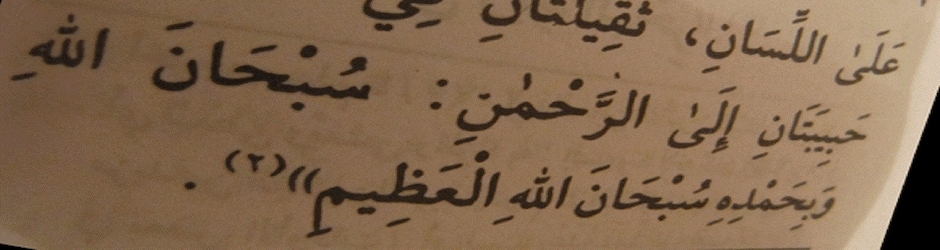 عَلَىٰ اللِّسَانِ، ثَقِيلَتَانِ فِي
حَبِيبَتَانِ إِلَىٰ الرَّحْمٰنِ: سُبْحَانَ اللهِ
وَبِحَمْدِهِ سُبْحَانَ اللهِ الْعَظِيمِ))(٢).